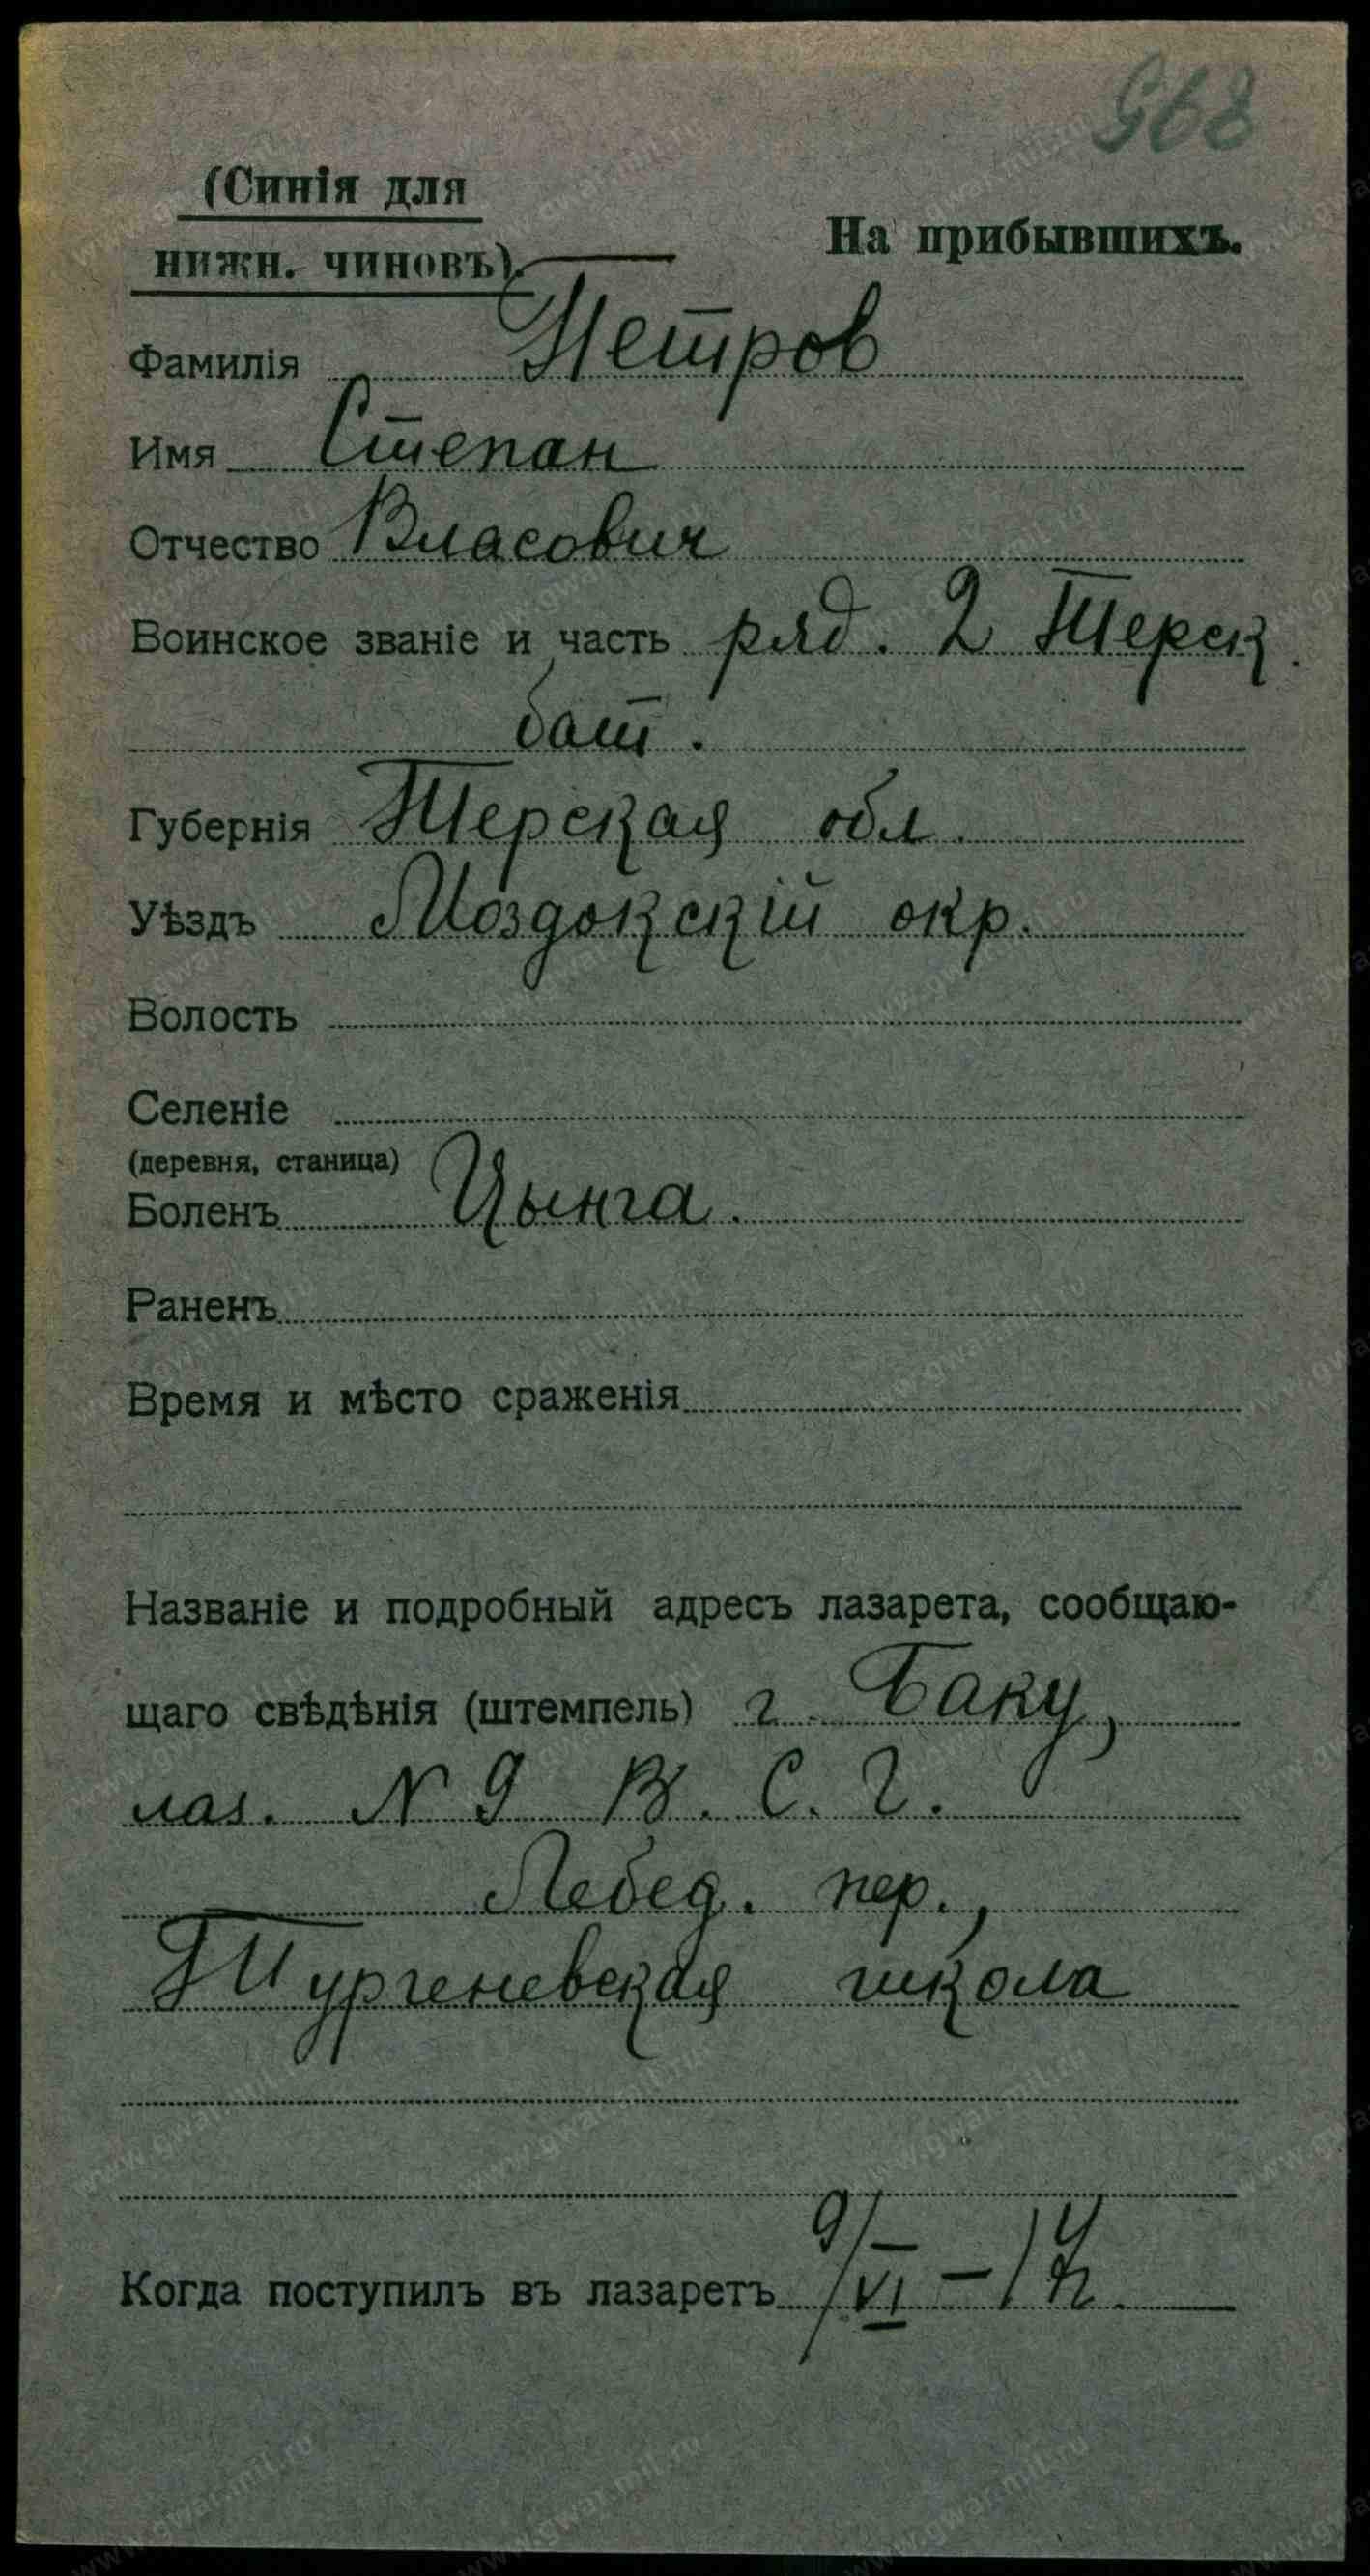 895
(Синія для
нижн. чиновъ).
На прибывшихъ.
Фамилія Петров
Имя Степан
Отчество Власович
Воинское званіе и часть ряд. 2 Терск.
бат.
Губернія Терская обл.
Уѣздъ Моздокскій окр.
Волость
Селеніе
(деревня, станица)
Боленъ Цынга.
Раненъ
Время и мѣсто сраженія
Названіе и подробный адресъ лазарета, сообщаю-
щаго свѣдѣнія (штемпель) г. Баку,
лаз. N 9 В. С. Г.
Лебед. пер.,
Тургеневская школа
Когда поступилъ въ лазаретъ 9/VI –